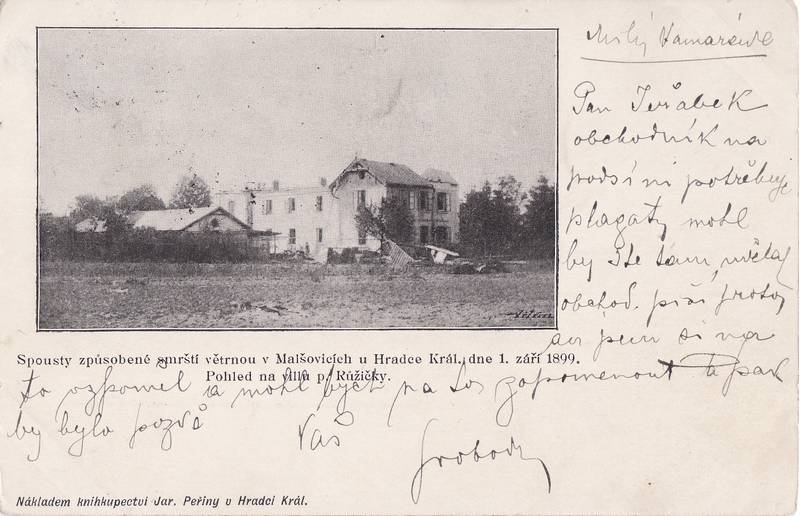 Milý Kamaráde
Pan Jeřábek
obchodník na
podsíni potřebuje
plagaty mohl
by ste tam udělat
obchod. píši proto
jsem si na
Spousty způsobené smrští větrnou v Malšovicích u Hradce Král., dne 1. září 1899.
Pohled na villu p. Růžičky.
to vzpomel a mohl bych na to zapomenout a pak
by bylo pozdě
Váš
Svoboda
Nákladem knihkupectví Jar. Peřiny v Hradci Král.